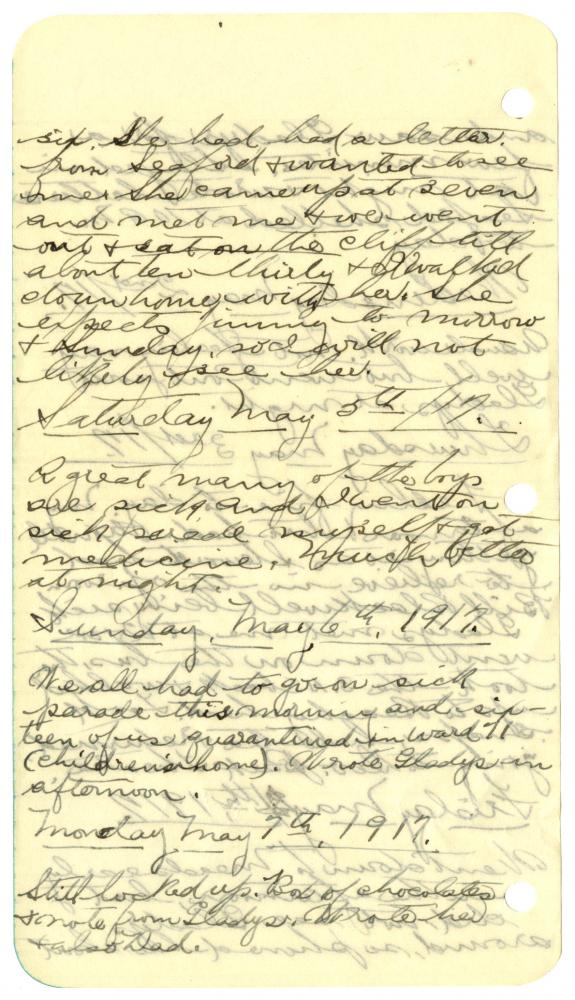 six. She had had a letter
from Seaford & wanted to see
me. She came up at seven
and met me & we went
out & sat on the cliff till
about ten thirty & I walked
down home with her. She
expects Jimmy to morrow
& Sunday, so I will not
likely see her.
Saturday May 5th/17.
A great many of the boys
are sick and I went on
sick parade myself & got
medicine. Much better
at night.
Sunday, May 6th, 1917.
We all had to go on sick
parade this morning and six-
teen of us quarantined in ward 11
(children's home). Wrote Gladys in
afternoon.
Monday May 7th, 1917.
Still locked up. Box of chocolates
& note from Gladys. Wrote her
& also Dad.